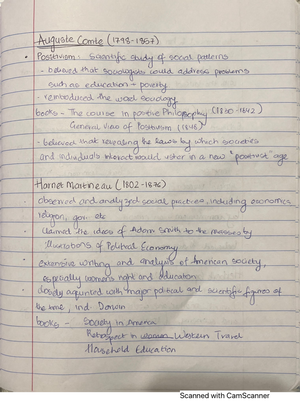 Auguste Comte (1798-1857)
• Positivism: Scientific study of social patterns
- believed that sociologists could address problems
such as education + poverty
- reintroduced the word sociology
books - The course in positive Philosophy (1830-1842)
General View of Positivism (1848)
- believed that revealing the laws by which societies
and individuals interact would usher in a new "positivist" age
Harriet Martineau (1802-1876)
- observed and analyzed social practices, including economics,
religion, gov. etc
- claimed the ideas of Adam Smith to the masses by
Illustrations of Political Economy
- extensive writing and analysis of American society,
especially women's right and education
- closely aquinted with major political and scientific figures of
the time, ind. Darwin
books - Society in America
Retrospect in Western Travel
Household Education
Scanned with CamScanner